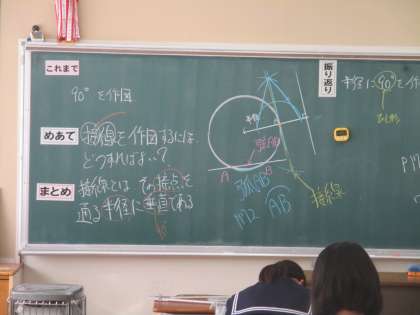 これまで
90°を作図
めあて
接線を作図するには
どうすればよい?
まとめ
接線とは その接点を
通る半径に垂直である
半径
弧AB
A
B
弧AB
AB
接線
振り返り
半径に90°を作